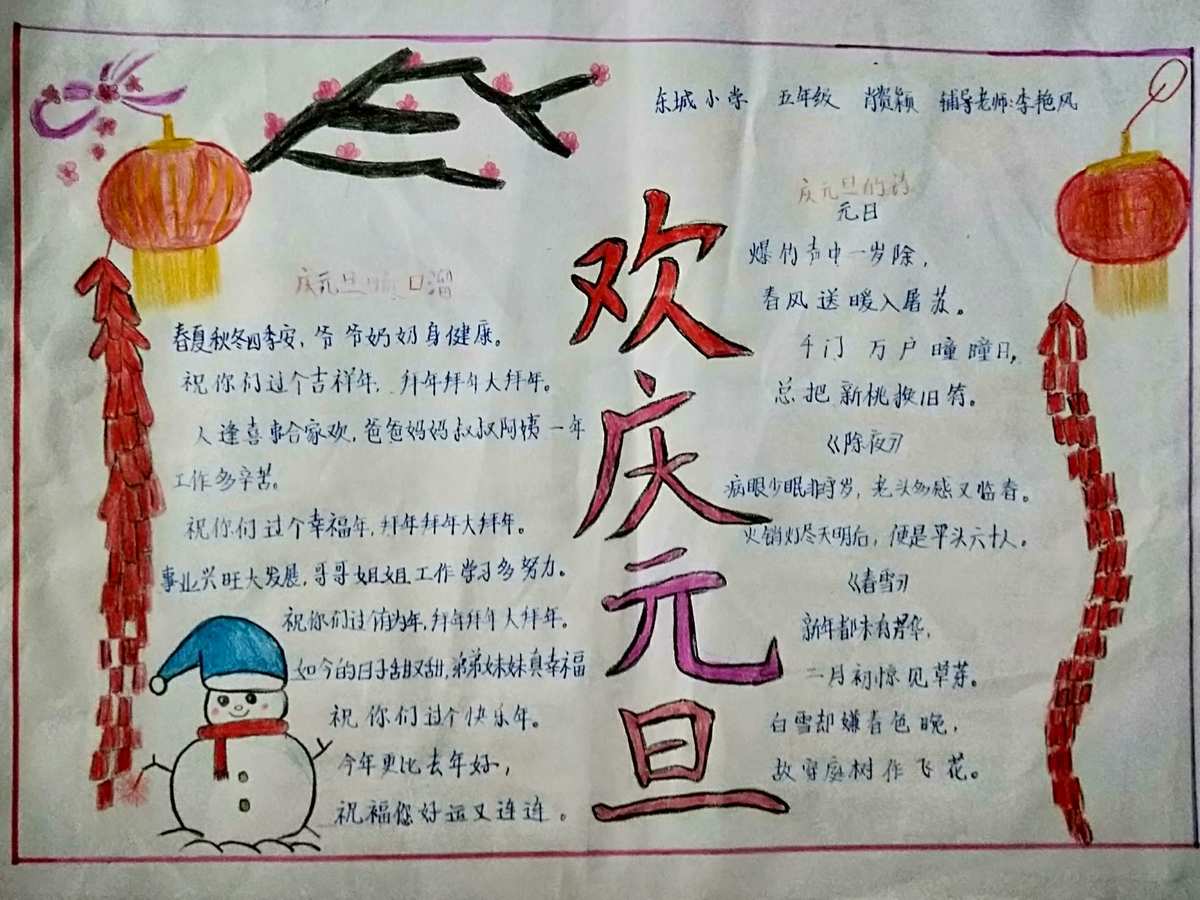 东城小学 五年级 肖贺颖 辅导老师:李艳风
欢庆元旦
庆元旦顺口溜
春夏秋冬四季安,爷爷奶奶身健康。
祝你们过个吉祥年,拜年拜年大拜年。
人逢喜事合家欢,爸爸妈妈叔叔阿姨一年
工作多辛苦。
祝你们过个幸福年,拜年拜年大拜年。
事业兴旺大发展,哥哥姐姐工作学习多努力。
祝你们过个有为年,拜年拜年大拜年。
如今的日子甜又甜,弟弟妹妹真幸福
祝你们过个快乐年。
今年更比去年好,
祝福您好运又连连。
庆元旦的诗
元日
爆竹声中一岁除,
春风送暖入屠苏。
千门万户瞳瞳日,
总把新桃换旧符。
《除夜》
病眼少眠非守岁,老头多感又临春。
火销灯尽天明后,便是平头六十人。
《春雪》
新年都未有芳华,
二月初惊见草芽。
白雪却嫌春色晚,
故穿庭树作飞花。